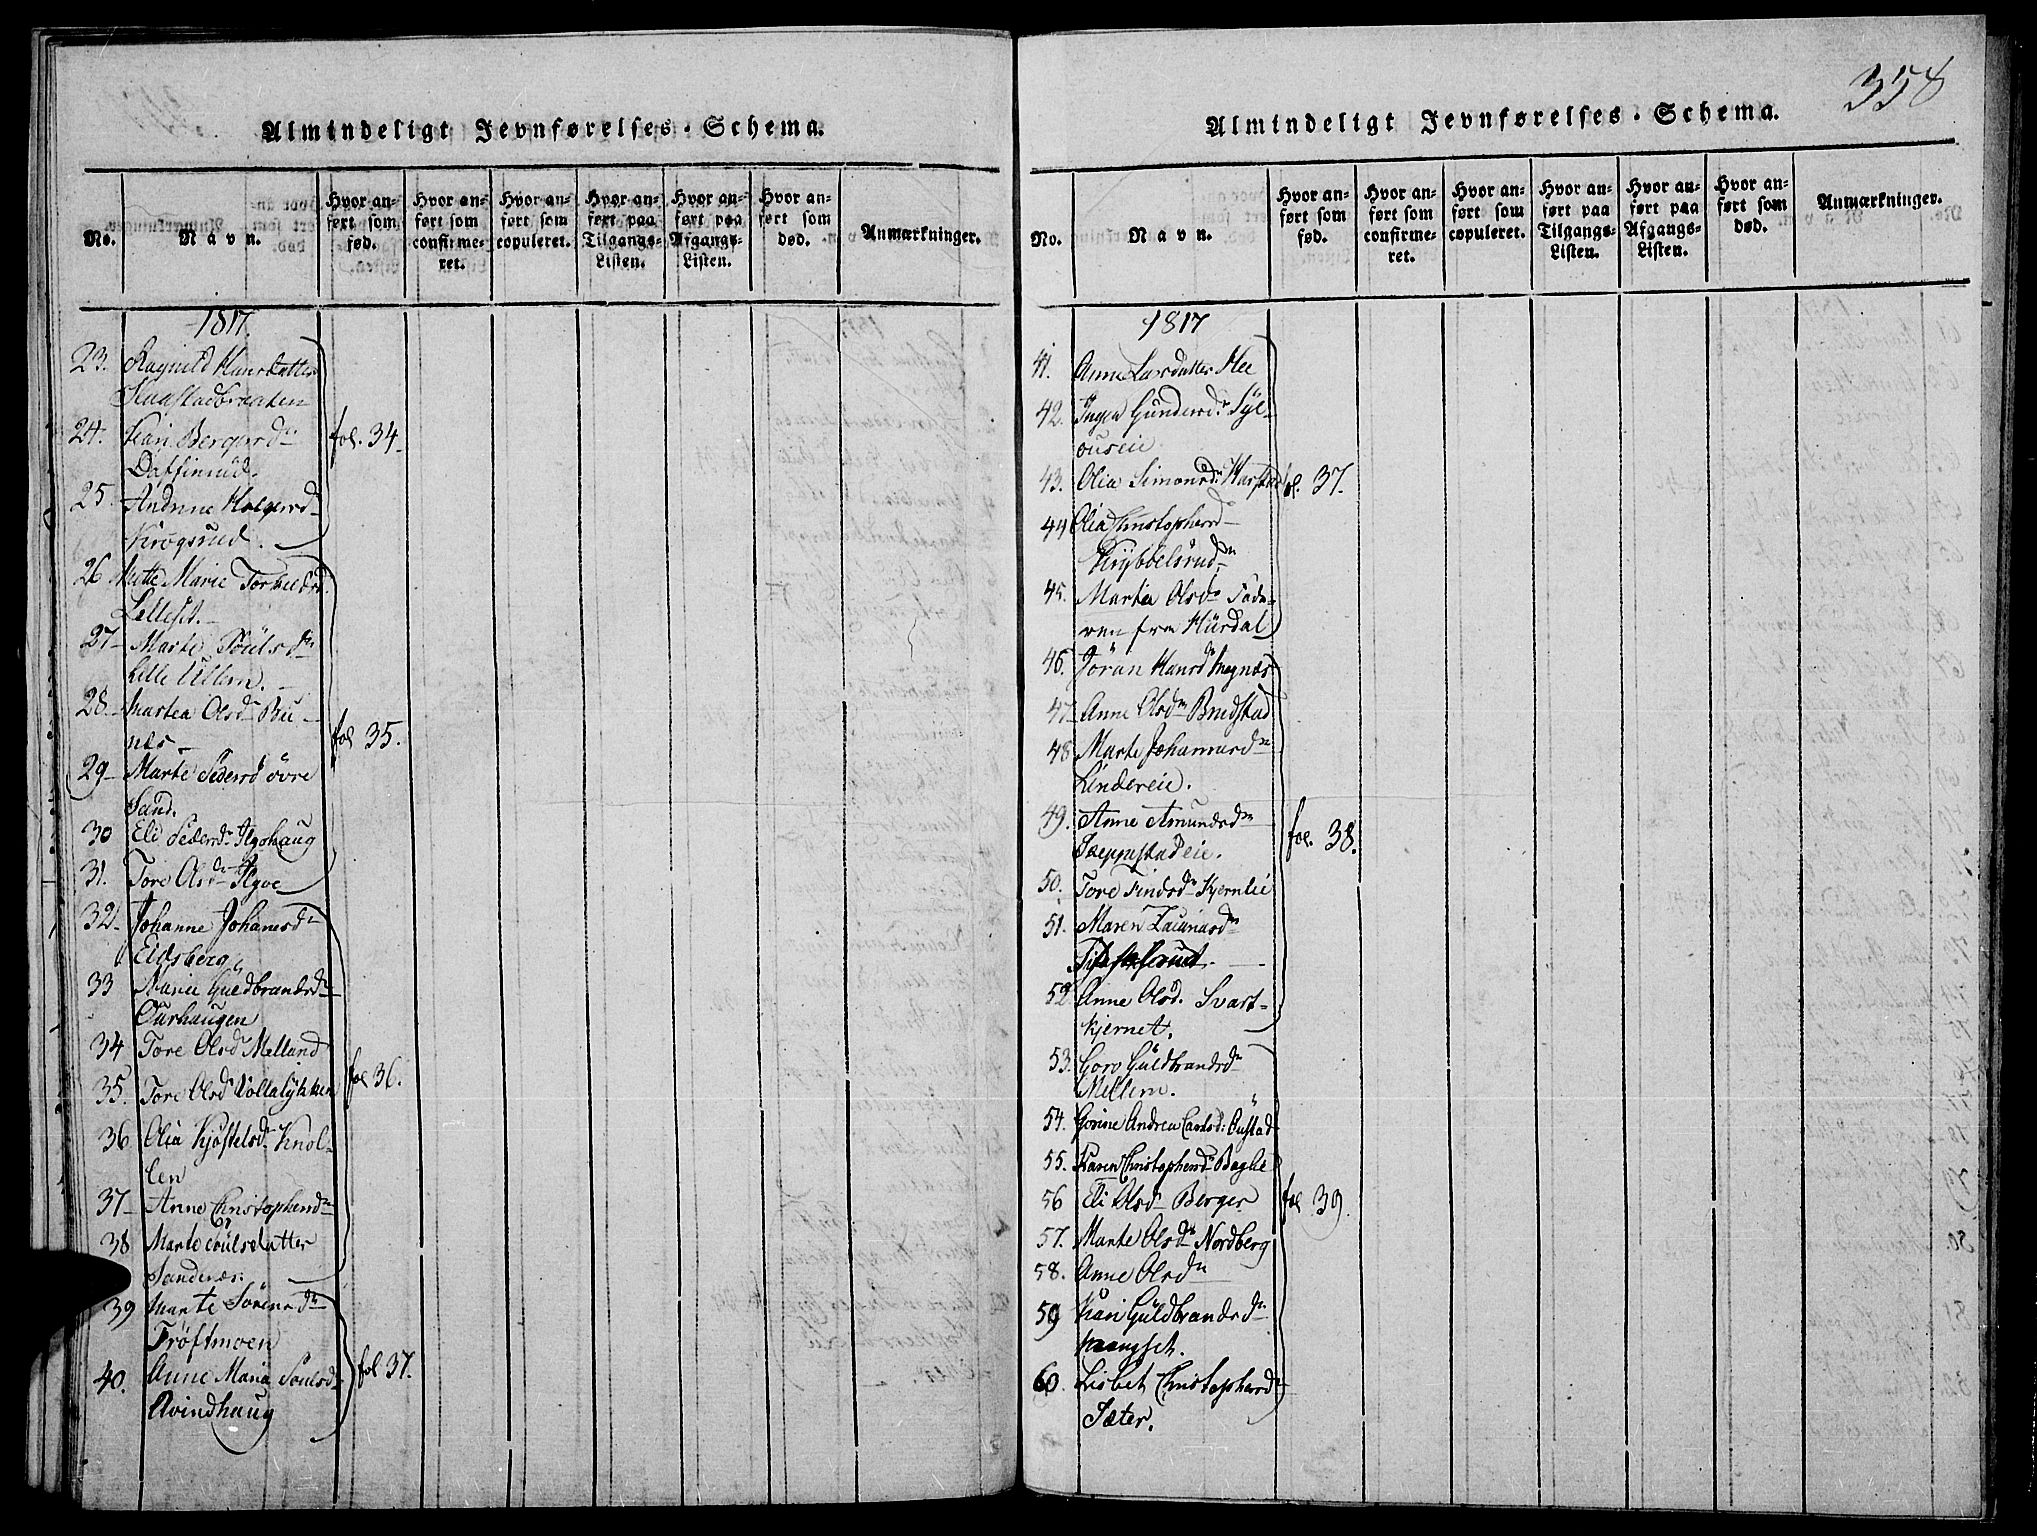 Almindeligt Jevnførelses-Schema.
No.
Navn.
Hvor an-
ført som
fød.
Hvor an-
ført som
confirme-
ret.
Hvor an-
ført som
copuleret.
Hvor an-
ført paa
Tilgangs-
Listen.
Hvor an-
ført paa
Afgangs-
Listen.
Hvor an-
ført som
død.
Anmærkninger.
1817.
23. Ragnild Hansdatter
Haastadbraaten
24. Kari Bergersdr
Daffinrud.
fol. 34.
25. Andrine Holgersd
Krogsrud.
26 Mette Marie Torkilds
Lilleset.
27 Marte Poulsdr
Lille Ullern.
28 Martea Olsdr Bu-
næs
fol 35.
29 Marte Pedersd øvre
Sand.
30 Eli Pedersdr Jlgohaug
31. Tore Olsdr Jlgoe
32. Johanne Johanesdr
Eidsberg
33 Marie Guldbrandsdr
Ourhaugen
34 Tore Olsdr Melland
35. Tore Olsd Vollaløkken
fol 36.
36 Olia Kjøstelsdr Knol-
len
37 Anne Christophersdr
38 Marte Poulsdatter
Sandnæs.
39 Marte Sørensdr
Trøftmoen
40. Anne Maria Poulsdr
Qvindhaug
fol 37.
358
Almindeligt Jevnførelses-Schema.
No.
Navn.
Hvor an-
ført som
fød.
Hvor an-
ført som
confirme-
ret.
Hvor an-
ført som
copuleret.
Hvor an-
ført paa
Tilgangs-
Listen.
Hvor an-
ført paa
Afgangs-
Listen.
Hvor an-
ført som
død.
Anmærkninger.
1817
41. Anne Larsdatter Hee
42. Inger Gundersdr Syl-
ouseie
43. Olia Simonsdr Harstad
fol. 37.
44 Olia Christophersd
Knybbelsrud
45. Martea Olsdr
ven fra Hürdal
46. Jöran Hansd Megnæs
47 Anne Olsdr Bredstad
48 Marte Johannesdr
Lindereie.
49. Anne Amundsdr
Seppestadeie.
fol. 38.
50. Tore Findsdr Kjernlie
51. Maren Lauriasdr
52 Anne Olsd. Svart-
kjernet.
53. Goro Guldbrandsdr
Mellem.
54. Gorine Andrea Carlsd: Oustad
55. Karen Christophersdr Baglie
56 Eli Olsdr Berger
fol 39.
57. Marte Olsdr Nordberg
58. Anne Olsdr
59 Kari Guldbrandsdr
Haangset.
60. Lisbet Christophersdr
Sæter.